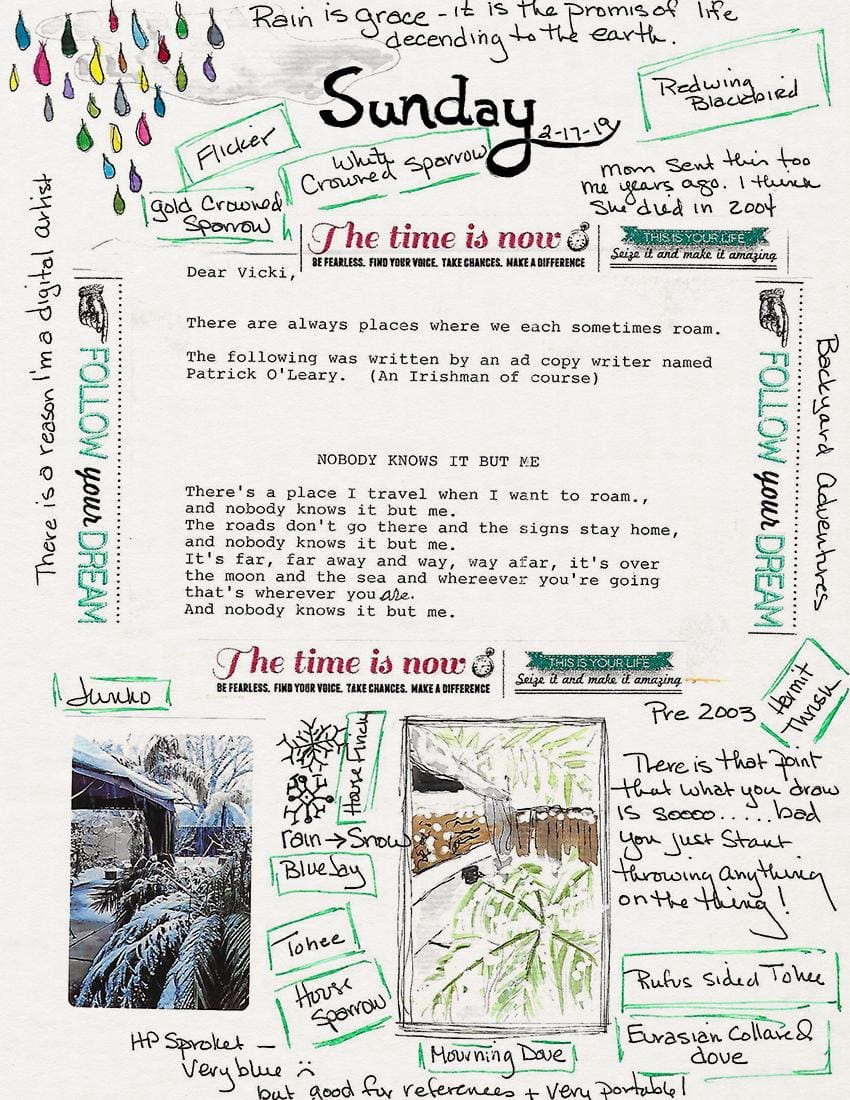 Rain is grace - it is the promis of life
decending to the earth.
Sunday
2-17-19
Redwing
Blackbird
Flicker
White
Crowned Sparrow
gold Crowned
Sparrow
Mom sent this too
me years ago. I think
She died in 2004
The time is now
BE FEARLESS. FIND YOUR VOICE. TAKE CHANCES. MAKE A DIFFERENCE
THIS IS YOUR LIFE
Seize it and make it amazing
There is a reason I'm a digital artist
FOLLOW your DREAM
Dear Vicki,
There are always places where we each sometimes roam.
The following was written by an ad copy writer named
Patrick O'Leary. (An Irishman of course)
NOBODY KNOWS IT BUT ME
There's a place I travel when I want to roam.,
and nobody knows it but me.
The roads don't go there and the signs stay home,
and nobody knows it but me.
It's far, far away and way, way afar, it's over
the moon and the sea and whereever you're going
that's wherever you are.
And nobody knows it but me.
FOLLOW your DREAM
Backyard Adventures
The time is now
BE FEARLESS. FIND YOUR VOICE. TAKE CHANCES. MAKE A DIFFERENCE
THIS IS YOUR LIFE
Seize it and make it amazing
Junko
House Finch
rain → Snow
Blue Jay
Tohee
House
Sparrow
Pre 2003
Hermit
Thrush
There is that point
that what you draw
is soooo.....bad
you just start
throwing anything
on the thing!
Rufus sided Tohee
Eurasian Collared
dove
Mourning Dove
HP Sproket —
Very blue ☹
but good for references + very portable!